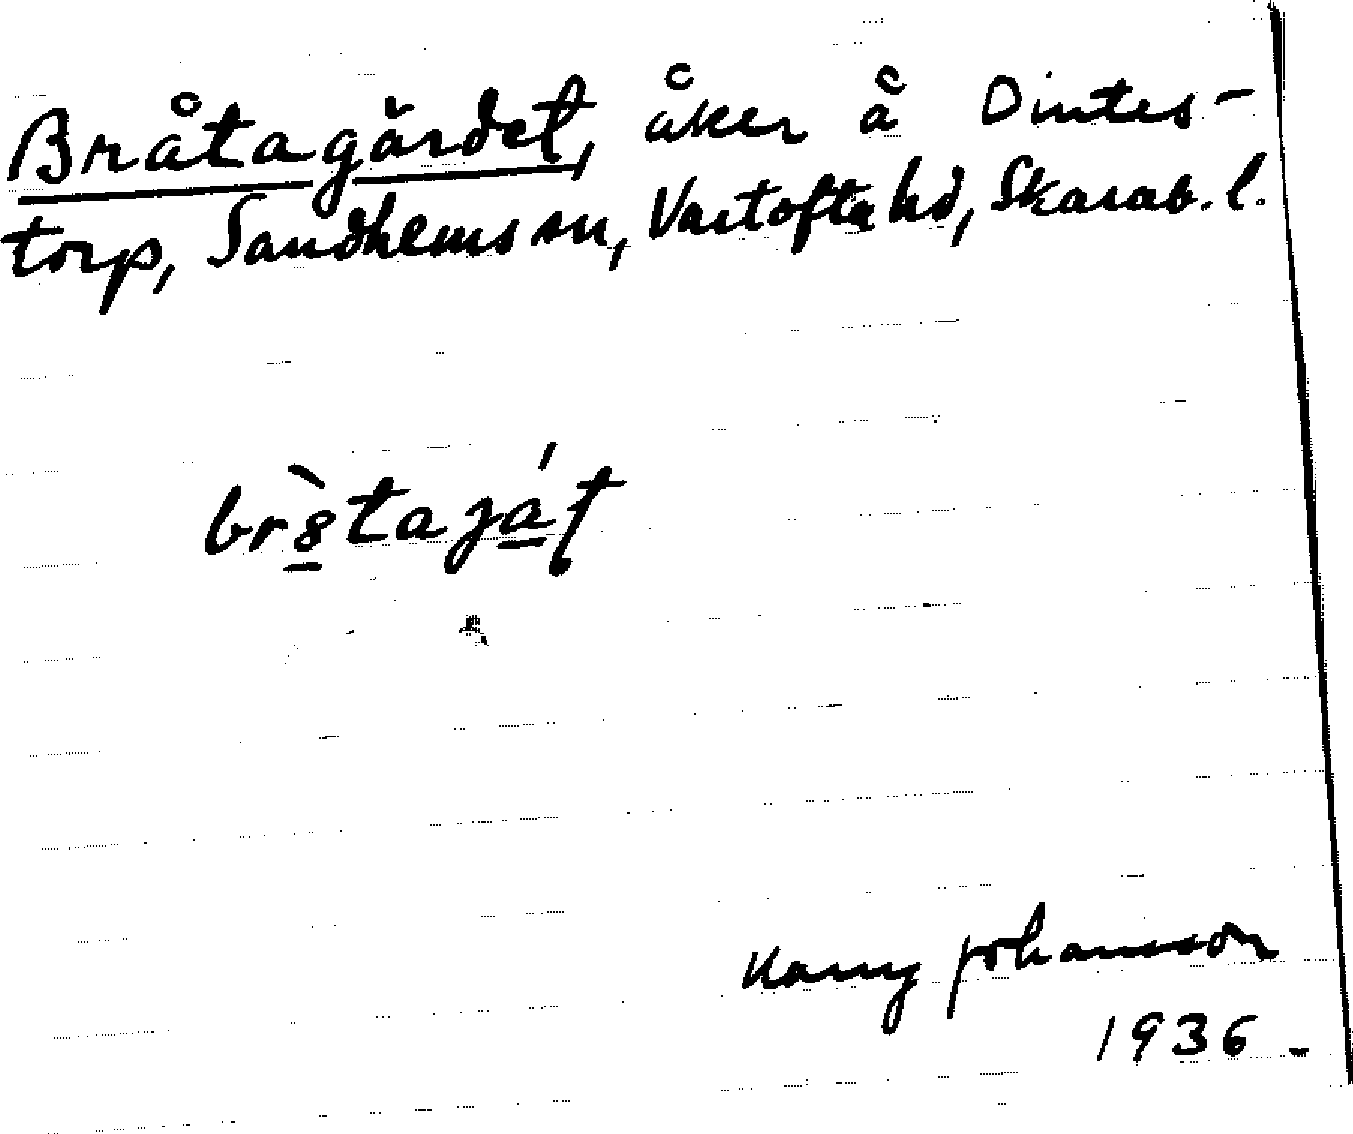 Bråtagärdet, åker å Dintes-
torp, Sandhems sn, Vartofta hd, Skarab. l.
Harry Johansson
1936